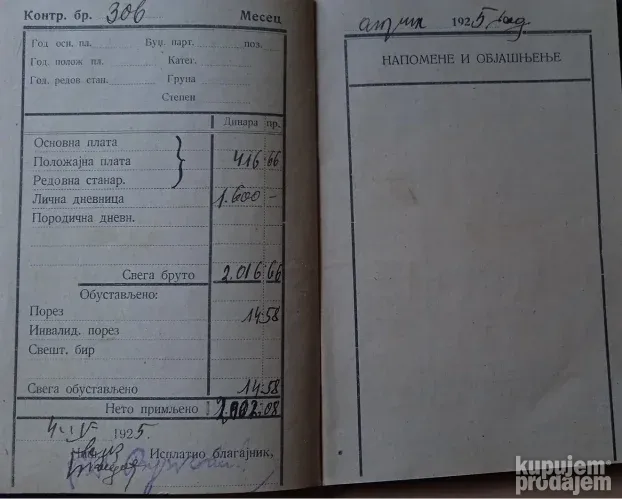 Контр. бр. 306 Месец април 1925 год.
Год оси. пл. Буџ парт. поз.
Год. полож пл. Катег.
Год. редов стан. Група
Степен
Динара пр.
Основна плата
Положајна плата 416.66
Редовна станар.
Лична дневница 1.600 -
Породична дневн.
Свега бруто 2.016 66
Обустављено:
Порез 14.58
Инвалид. порез
Свешт. бир
Свега обустављено 14.58
Нето примљено 2.002.08
4-IV 1925.
Исплатио благајник,
НАПОМЕНЕ И ОБЈАШЊЕЊЕ
kupujem prodajem